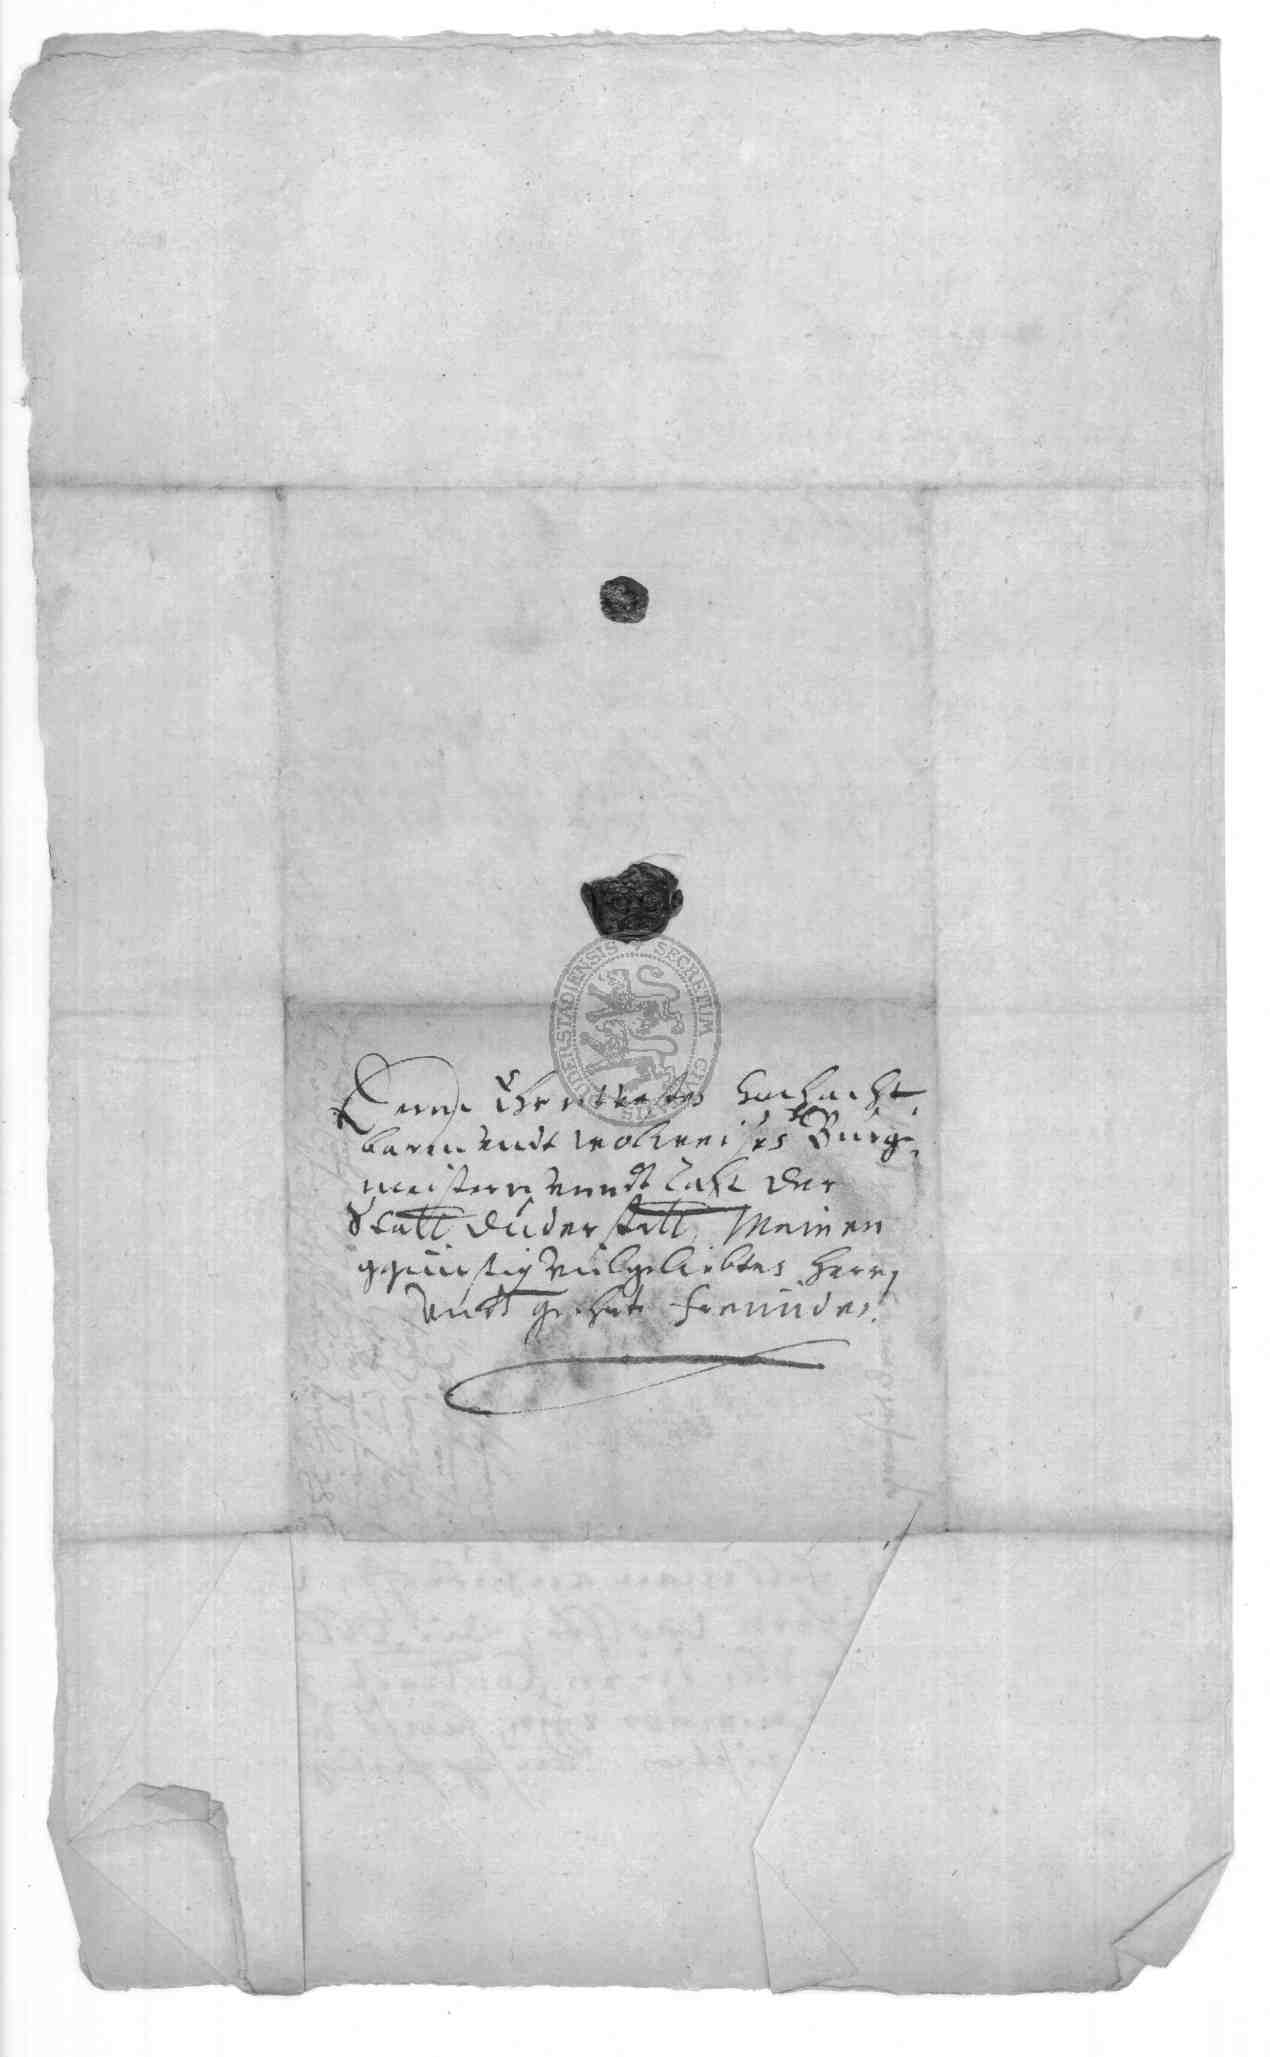 SECRETUM CIVI
DUDERSTADIENSIS
Denn Ehrnvesten hochacht,
barn undt wolweisen Burg,
meistern unndt Raht der
Statt Duderstatt, Meinen
ggünstig vielgeliebten Herrn
undt geehrten Freunden.